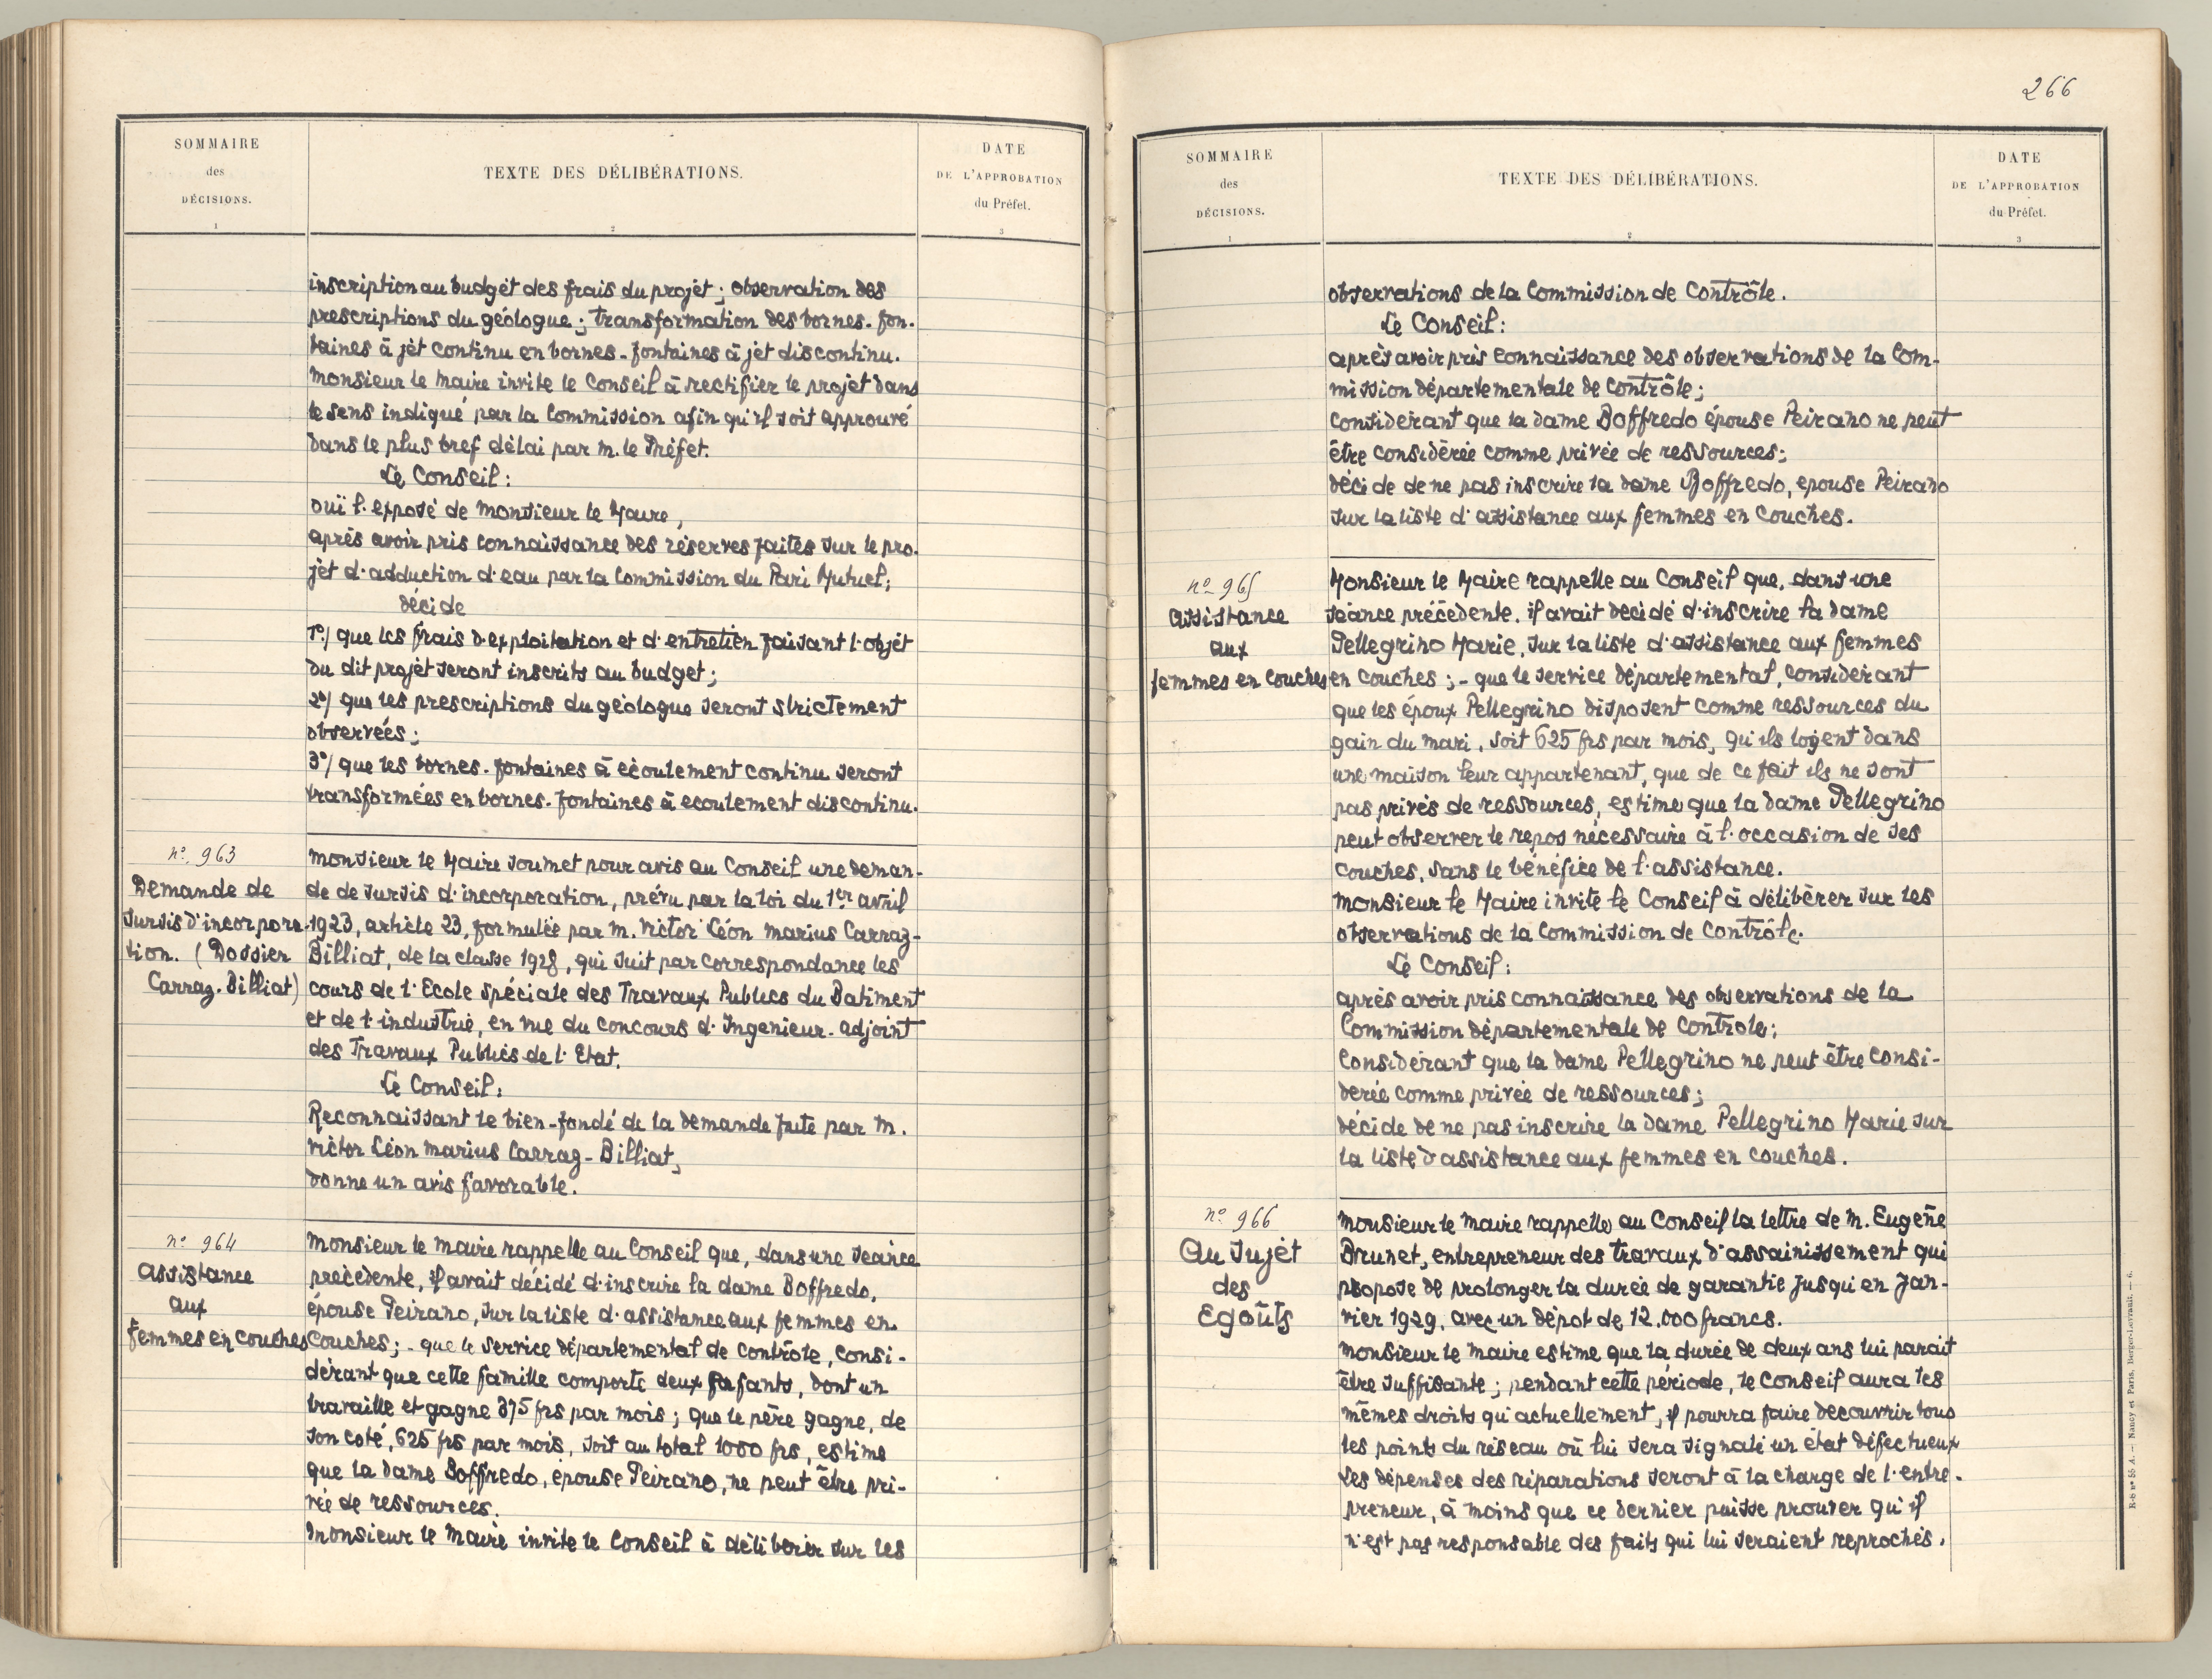 SOMMAIRE
des
DÉCISIONS.
1
TEXTE DES DÉLIBÉRATIONS.
2
DATE
DE L'APPROBATION
du Préfet.
3
inscription au budget des frais du projet ; observation des
prescriptions du géologue ; transformation des bornes-fon-
taines à jet continu en bornes-fontaines à jet discontinu.
Monsieur le Maire invite le Conseil à rectifier le projet dans
le sens indiqué par la Commission afin qu'il soit approuvé
dans le plus bref délai par M. le Préfet.
Le Conseil :
ouï l'exposé de Monsieur le Maire,
après avoir pris connaissance des réserves faites sur le pro-
jet d'adduction d'eau par la Commission du Pari Mutuel ;
décide
1°/ que les frais d'exploitation et d'entretien faisant l'objet
du dit projet seront inscrits au budget ;
2°/ que les prescriptions du géologue seront strictement
observées ;
3°/ que les bornes-fontaines à écoulement continu seront
transformées en bornes-fontaines à écoulement discontinu.
n° 963
Demande de
sursis d'incorpora-
tion. (Dossier
Carraz-Billiat)
Monsieur le Maire soumet pour avis au Conseil une deman-
de de sursis d'incorporation, prévu par la loi du 1er avril
1923, article 23, formulée par M. Victor Léon Marius Carraz-
Billiat, de la classe 1928, qui suit par correspondance les
cours de l'Ecole spéciale des Travaux Publics du Batiment
et de l'industrie, en vue du concours d'Ingenieur-adjoint
des Travaux Publics de l'Etat.
Le Conseil :
Reconnaissant le bien-fondé de la demande faite par M.
Victor Léon Marius Carraz-Billiat,
donne un avis favorable.
n° 964
Assistance
aux
femmes en couches
Monsieur le Maire rappelle au Conseil que, dans une séance
précédente, il avait décidé d'inscrire la dame Boffredo,
épouse Peirano, sur la liste d'assistance aux femmes en
couches ; - que le service départemental de contrôle, consi-
dérant que cette famille comporte deux enfants, dont un
travaille et gagne 375 frs par mois ; que le père gagne, de
son coté, 625 frs par mois, soit au total 1000 frs, estime
que la dame Boffredo, épouse Peirano, ne peut être pri-
vée de ressources.
Monsieur le Maire invite le Conseil à délibérer sur les
266
SOMMAIRE
des
DÉCISIONS.
1
TEXTE DES DÉLIBÉRATIONS.
2
DATE
DE L'APPROBATION
du Préfet.
3
observations de la Commission de Contrôle.
Le Conseil :
après avoir pris connaissance des observations de la Com-
mission départementale de Contrôle ;
considérant que la dame Boffredo épouse Peirano ne peut
être considérée comme privée de ressources ;
décide de ne pas inscrire la dame Boffredo, epouse Peirano
sur la liste d'assistance aux femmes en couches.
n° 965
Assistance
aux
femmes en couches
Monsieur le Maire rappelle au Conseil que, dans une
séance précédente, il avait decidé d'inscrire la dame
Pellegrino Marie, sur la liste d'assistance aux femmes
en couches ; - que le service départemental, considérant
que les époux Pellegrino disposent comme ressources du
gain du mari, soit 625 frs par mois, qu'ils logent dans
une maison leur appartenant, que de ce fait ils ne sont
pas privés de ressources, estime que la dame Pellegrino
peut observer le repos nécessaire à l'occasion de ses
couches, sans le bénéfice de l'assistance.
Monsieur le Maire invite le Conseil à délibérer sur les
observations de la Commission de Contrôle.
Le Conseil :
après avoir pris connaissance des observations de la
Commission départementale de contrôle ;
Considérant que la dame Pellegrino ne peut être consi-
derée comme privée de ressources ;
décide de ne pas inscrire la dame Pellegrino Marie sur
la liste d'assistance aux femmes en couches.
n° 966
Au sujet
des
Egoûts
Monsieur le Maire rappelle au Conseil la lettre de M. Eugène
Brunet, entrepreneur des travaux d'assainissement qui
propose de prolonger la durée de garantie jusqu'en Jan-
vier 1929, avec un dépot de 12.000 francs.
Monsieur le Maire estime que la durée de deux ans lui parait
être suffisante ; pendant cette période, le Conseil aura les
mêmes droits qu'actuellement, il pourra faire decouvrir tous
les points du réseau où lui sera signalé un état défectueux
Les dépenses des réparations seront à la charge de l'entre-
preneur, à moins que ce dernier puisse prouver qu'il
n'est pas responsable des faits qui lui seraient reprochés.
R-S n° 55 A. — Nancy et Paris. Berger-Levrault. — 6.